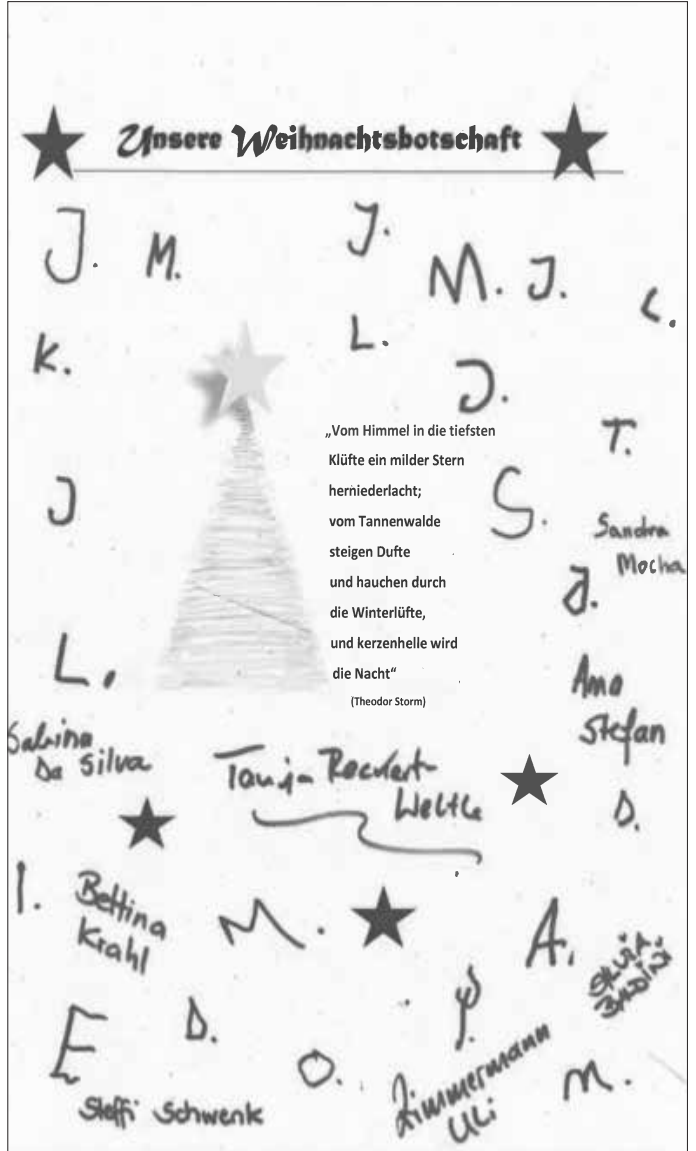 Unsere Weihnachtsbotschaft
J. M. J. M. J. L.
K. L. J.
„Vom Himmel in die tiefsten
Klüfte ein milder Stern
herniederlacht;
vom Tannenwalde
steigen Dufte
und hauchen durch
die Winterlüfte,
und kerzenhelle wird
die Nacht“
(Theodor Storm)
T.
J
S.
Sandra
Mocha
J.
L.
Ana
Stefan
Sabina
Da Silva
Tanja Reckert-
Weltle
D.
I.
Bettina
Krahl
M.
A.
SILVIA
BALDINI
E
D.
O.
Zimmermann
Uli
M.
Steffi Schwenk